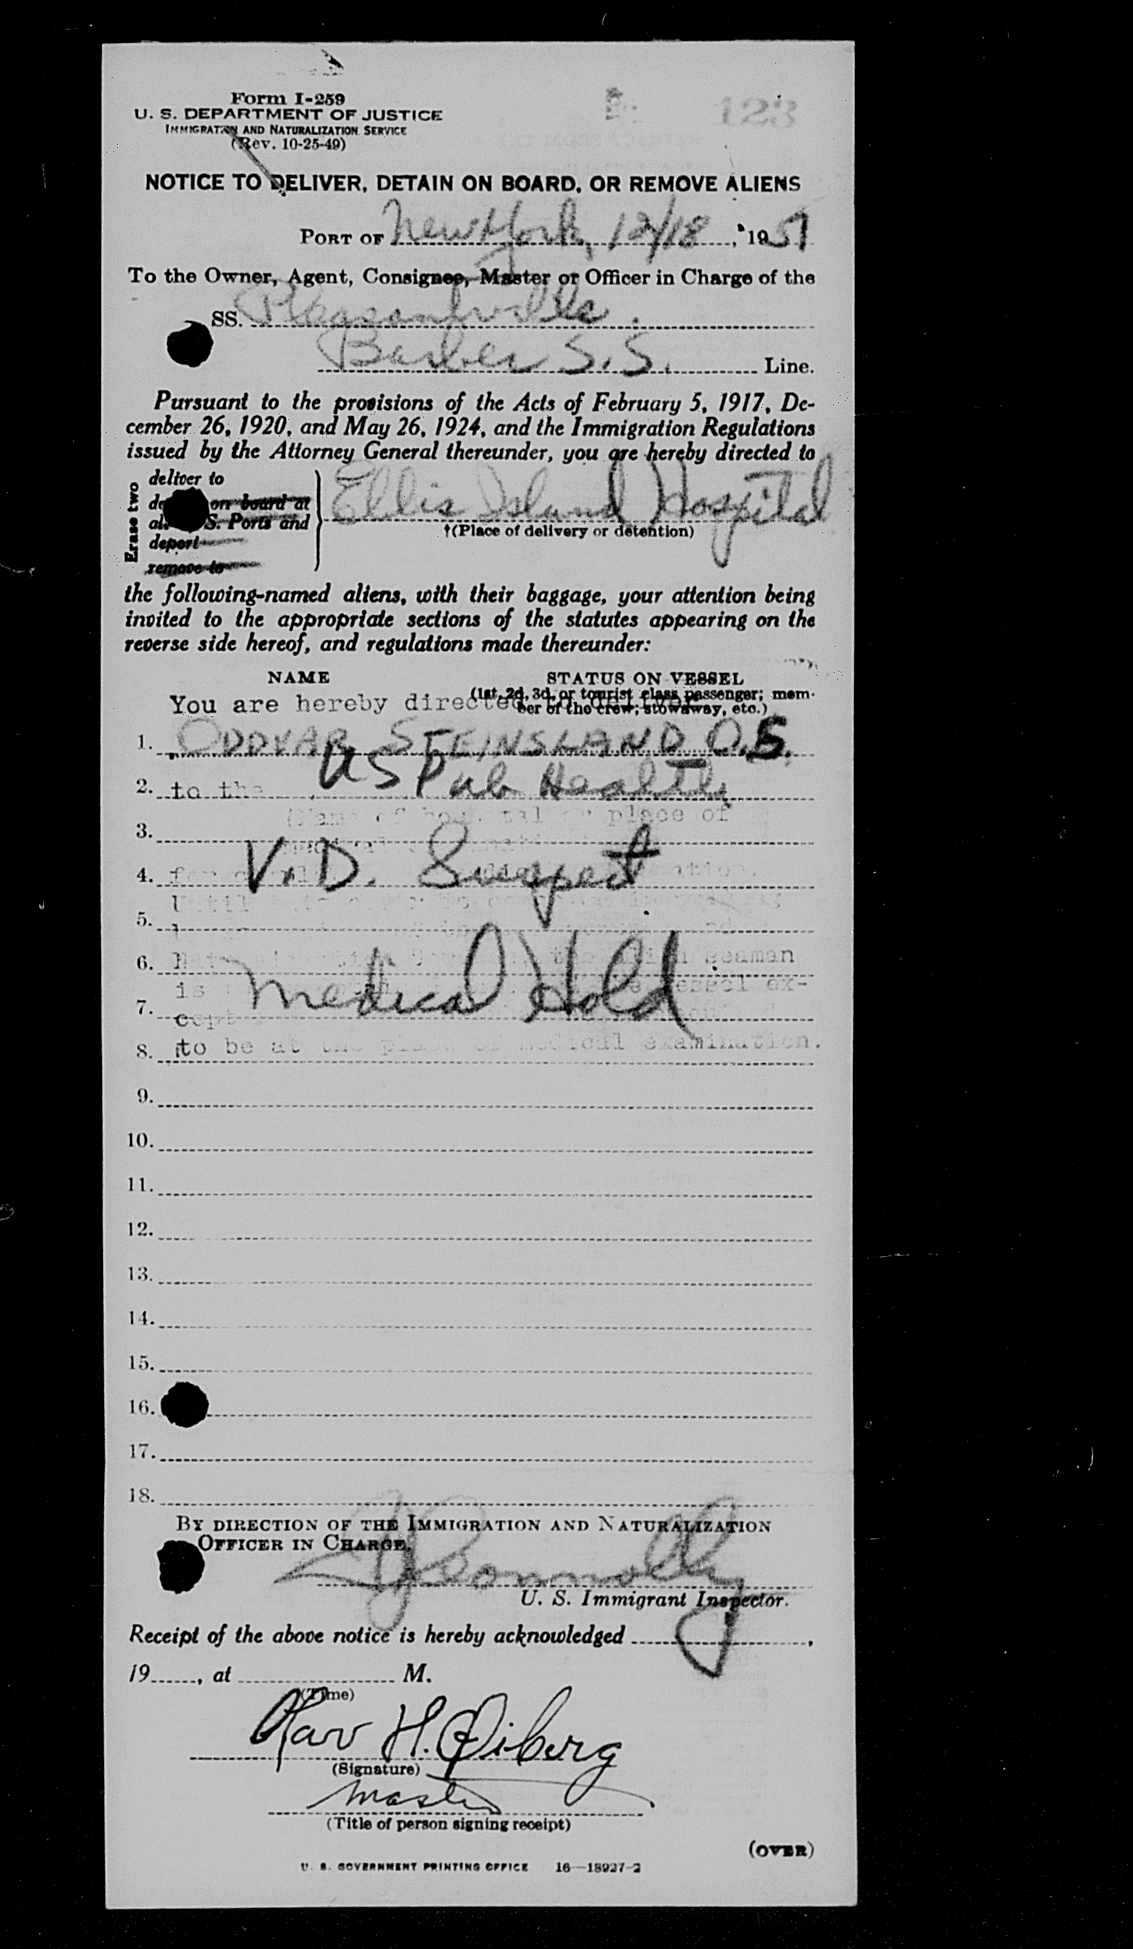 123
Form I-259
U. S. DEPARTMENT OF JUSTICE
IMMIGRATION AND NATURALIZATION SERVICE
(Rev. 10-25-49)
NOTICE TO DELIVER, DETAIN ON BOARD, OR REMOVE ALIENS
PORT OF New York, 12/18, 1951
To the Owner, Agent, Consignee, Master or Officer in Charge of the
SS. Pleasantville
Barber S.S. Line.
Pursuant to the provisions of the Acts of February 5, 1917, De-
cember 26, 1920, and May 26, 1924, and the Immigration Regulations
issued by the Attorney General thereunder, you are hereby directed to
Erase two
deliver to
on board at
S. Ports and
deport
remove to
Ellis Island Hospital
†(Place of delivery or detention)
the following-named aliens, with their baggage, your attention being
invited to the appropriate sections of the statutes appearing on the
reverse side hereof, and regulations made thereunder:
NAME STATUS ON VESSEL
(1st, 2d, 3d, or tourist class passenger; mem-
ber of the crew; stowaway, etc.)
You are hereby directed to deliver
1. ODDVAR STEINSLAND O.S.
2. to the US Pub Health
place of
3.
4. V.D. Suspect
5.
6. seamen
Medical Hold
is vessel ex-
7.
8. to be at the place of medical examination.
9.
10.
11.
12.
13.
14.
15.
16.
17.
18.
BY DIRECTION OF THE IMMIGRATION AND NATURALIZATION
OFFICER IN CHARGE.
Connolly
U. S. Immigrant Inspector.
Receipt of the above notice is hereby acknowledged ,
19 , at M.
(Time)
H.
(Signature)
Master
(Title of person signing receipt)
(OVER)
U. S. GOVERNMENT PRINTING OFFICE 16—18927-2